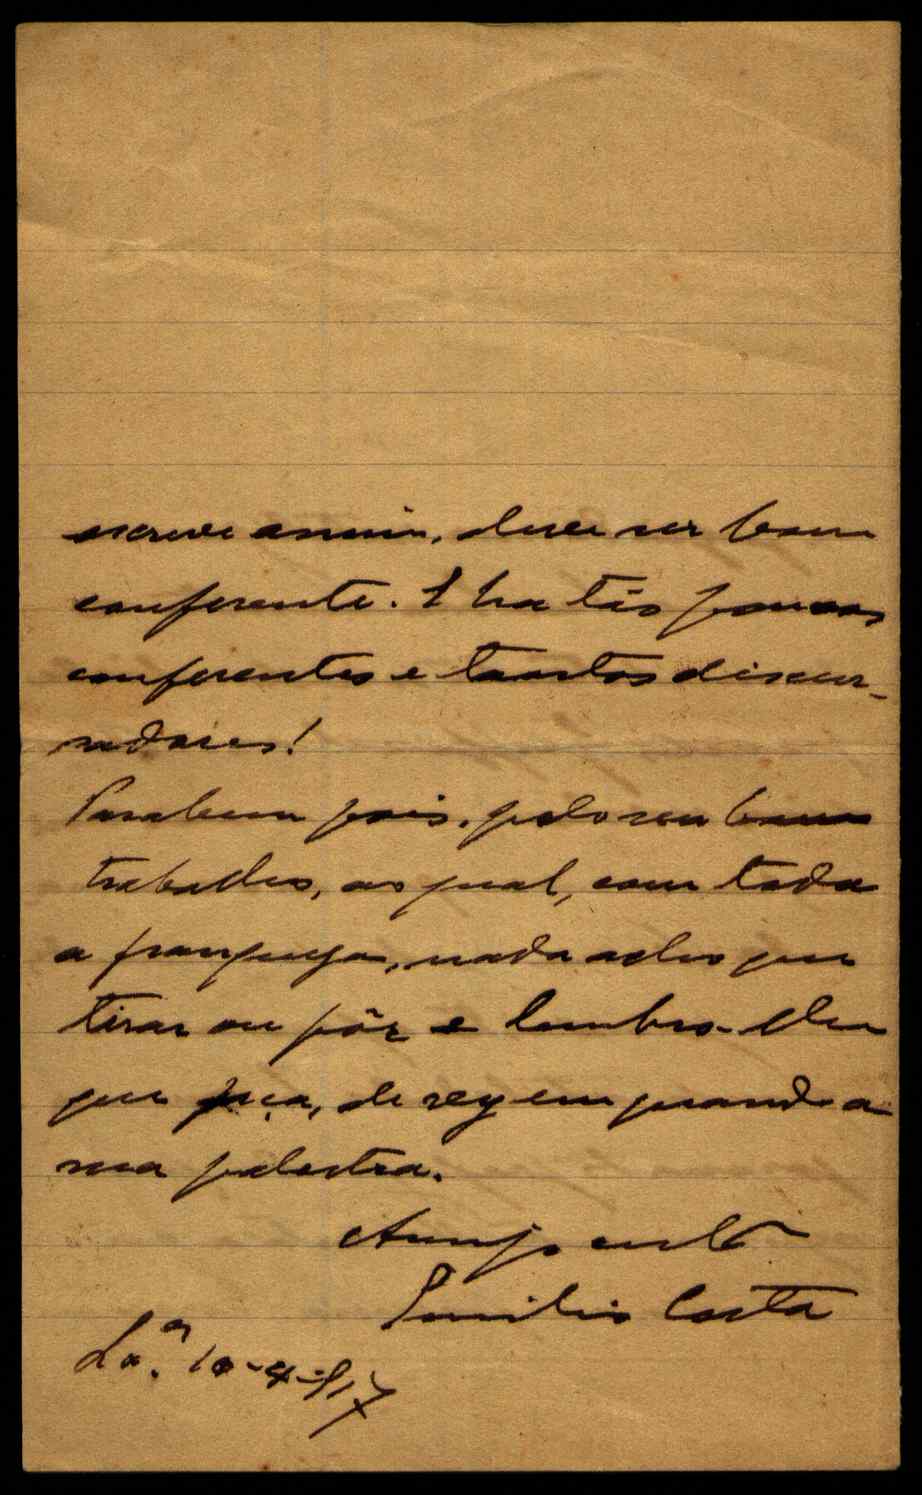 escreve assim, deve ser bom
conferente. E ha tão poucos
conferentes e tantos discur-
sadores!
Parabens pois, pelo seu bom
trabalho, ao qual, com toda
a franqueza, nada acho que
tirar ou pôr e lembro-lhe
que faça, de vez em quando a
sua palestra.
Amigo
Emilio Costa
Lxª. 10-4-917